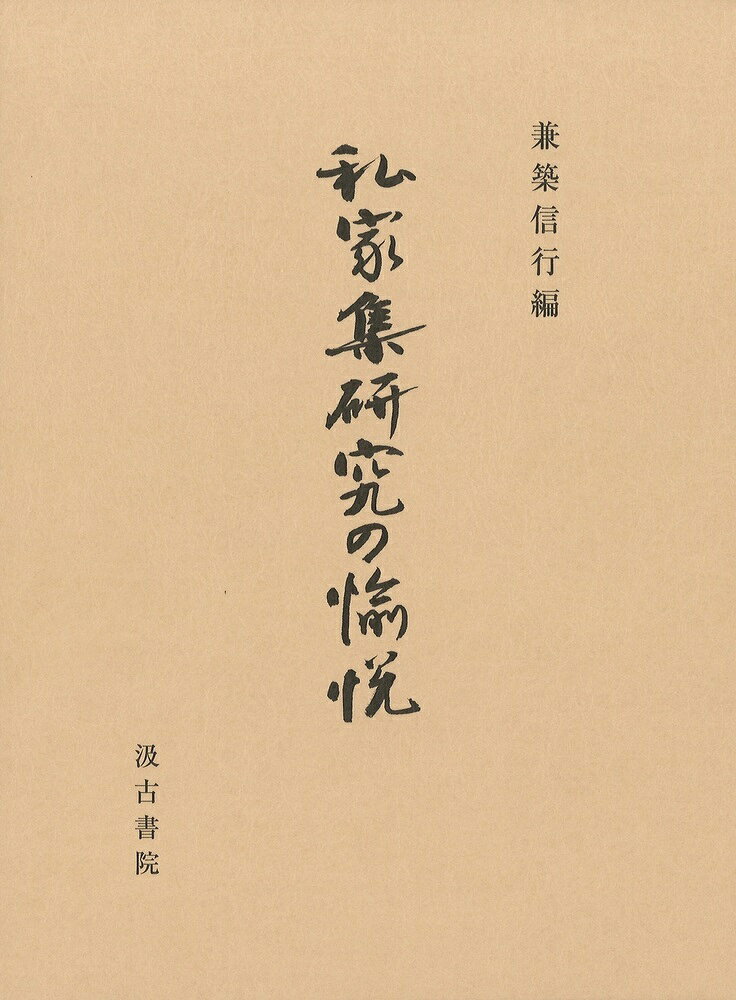 兼築信行編
私家集研究の愉悦
汲古書院